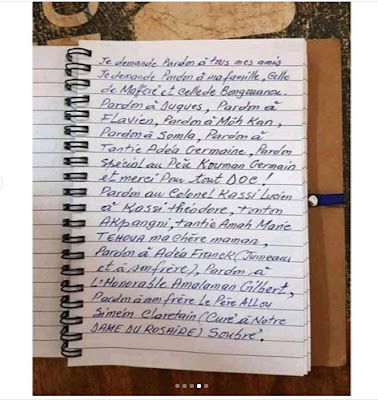 Je demande Pardon à tous mes amis
Je demande Pardon à ma famille, Celle
de Maféré et celle de Bongouanou.
Pardon à Dugues, Pardon à
Flavien, Pardon à Môh Kan,
Pardon à Somla, Pardon à
Tantie Adéa Germaine, Pardon
spécial au Père Kouman Germain
et merci Pour tout DOC !
Pardon au Colonel Kassi Lucien
à Kassi théodore, tonton
AKpangni, tantie Amoh Marie
TEHOUA ma chère maman,
Pardon à Adéa Franck (Jumeau
et à son frère), Pardon à
L'Honorable Amalaman Gilbert,
Pardon à mon frère Le Père ALLOU
Siméon Claretain (Curé à Notre
DAME DU ROSAIRE) Soubré.